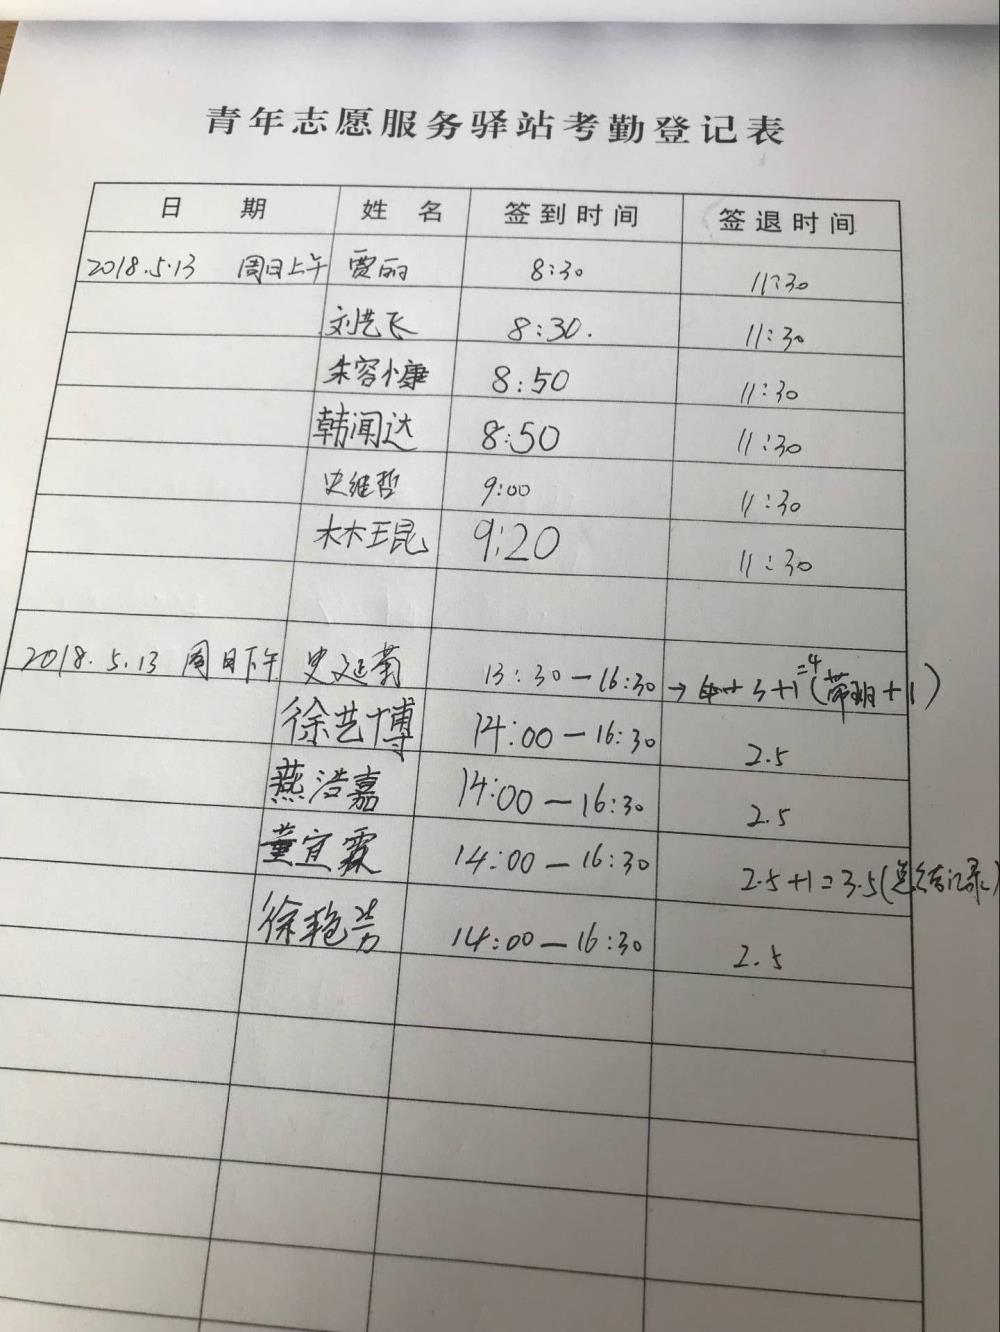 青年志愿服务驿站考勤登记表
日 期 姓 名 签到时间 签退时间
2018.5.13 周日上午 贾丽 8:30 11:30
刘艺飞 8:30. 11:30
朱容小康 8:50 11:30
韩闻达 8:50 11:30
史维哲 9:00 11:30
林王昆 9:20 11:30
2018.5.13 周日下午 史延菊 13:30—16:30 → 3+1=4(带班+1)
徐艺博 14:00—16:30 2.5
燕浩嘉 14:00—16:30 2.5
董宜霖 14:00—16:30 2.5+1=3.5(总结记录)
徐艳芳 14:00—16:30 2.5